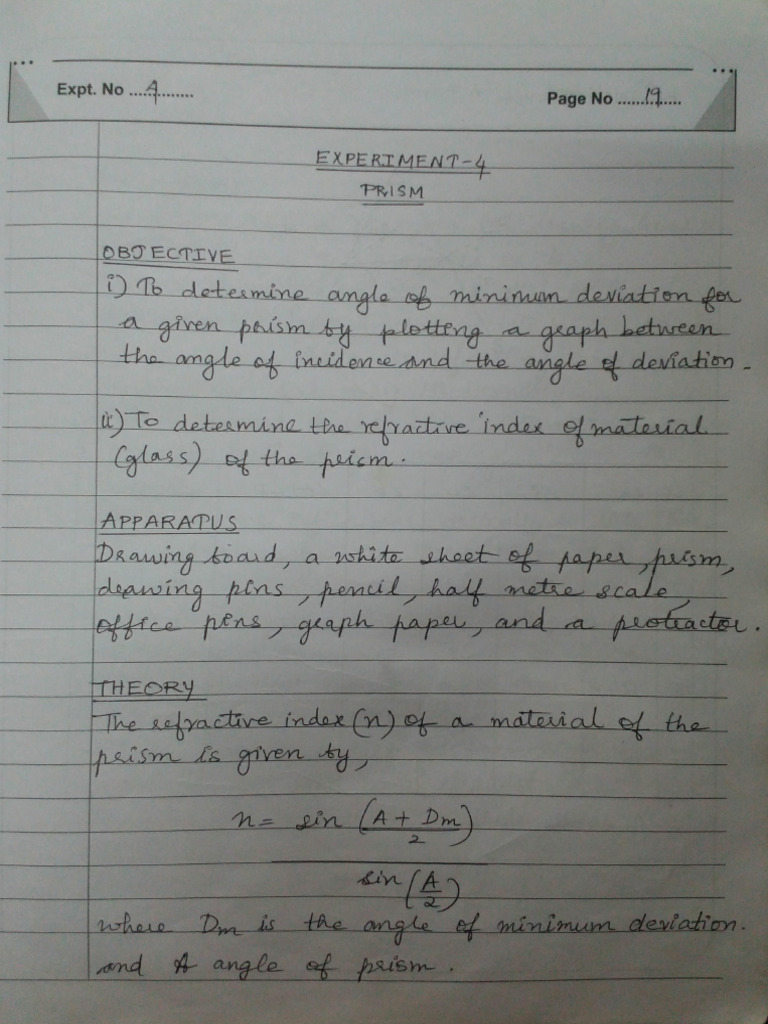 Expt. No ....4..........
Page No .......19.....
EXPERIMENT-4
PRISM
OBJECTIVE
i) To determine angle of minimum deviation for
a given prism by plotting a graph between
the angle of incidence and the angle of deviation.
ii) To determine the refractive index of material
(glass) of the prism.
APPARATUS
Drawing board, a white sheet of paper, prism,
drawing pins, pencil, half metre scale,
office pins, graph paper, and a protractor.
THEORY
The refractive index (n) of a material of the
prism is given by,
n = sin (A + Dm / 2)
sin (A / 2)
where Dm is the angle of minimum deviation.
and A angle of prism.